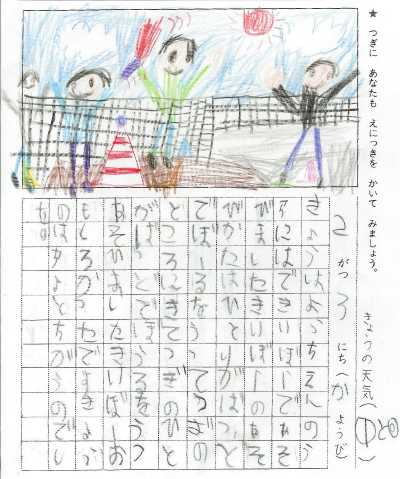 ★ つぎに あなたも えにっきを かいて みましょう。
きょうの天気(
2 がつ にち(か ようび)
きょうはようちえんのう
にはできいぼーであそ
びましたきいぼーのあそ
びかたはひとりがばっ
でぼーるなうってつぎの
ところにきてつぎのひと
がばっとでぼうるをうっ
あそびましたきいぼーお
もしろかったですきょう
のはちよとちがうのでし